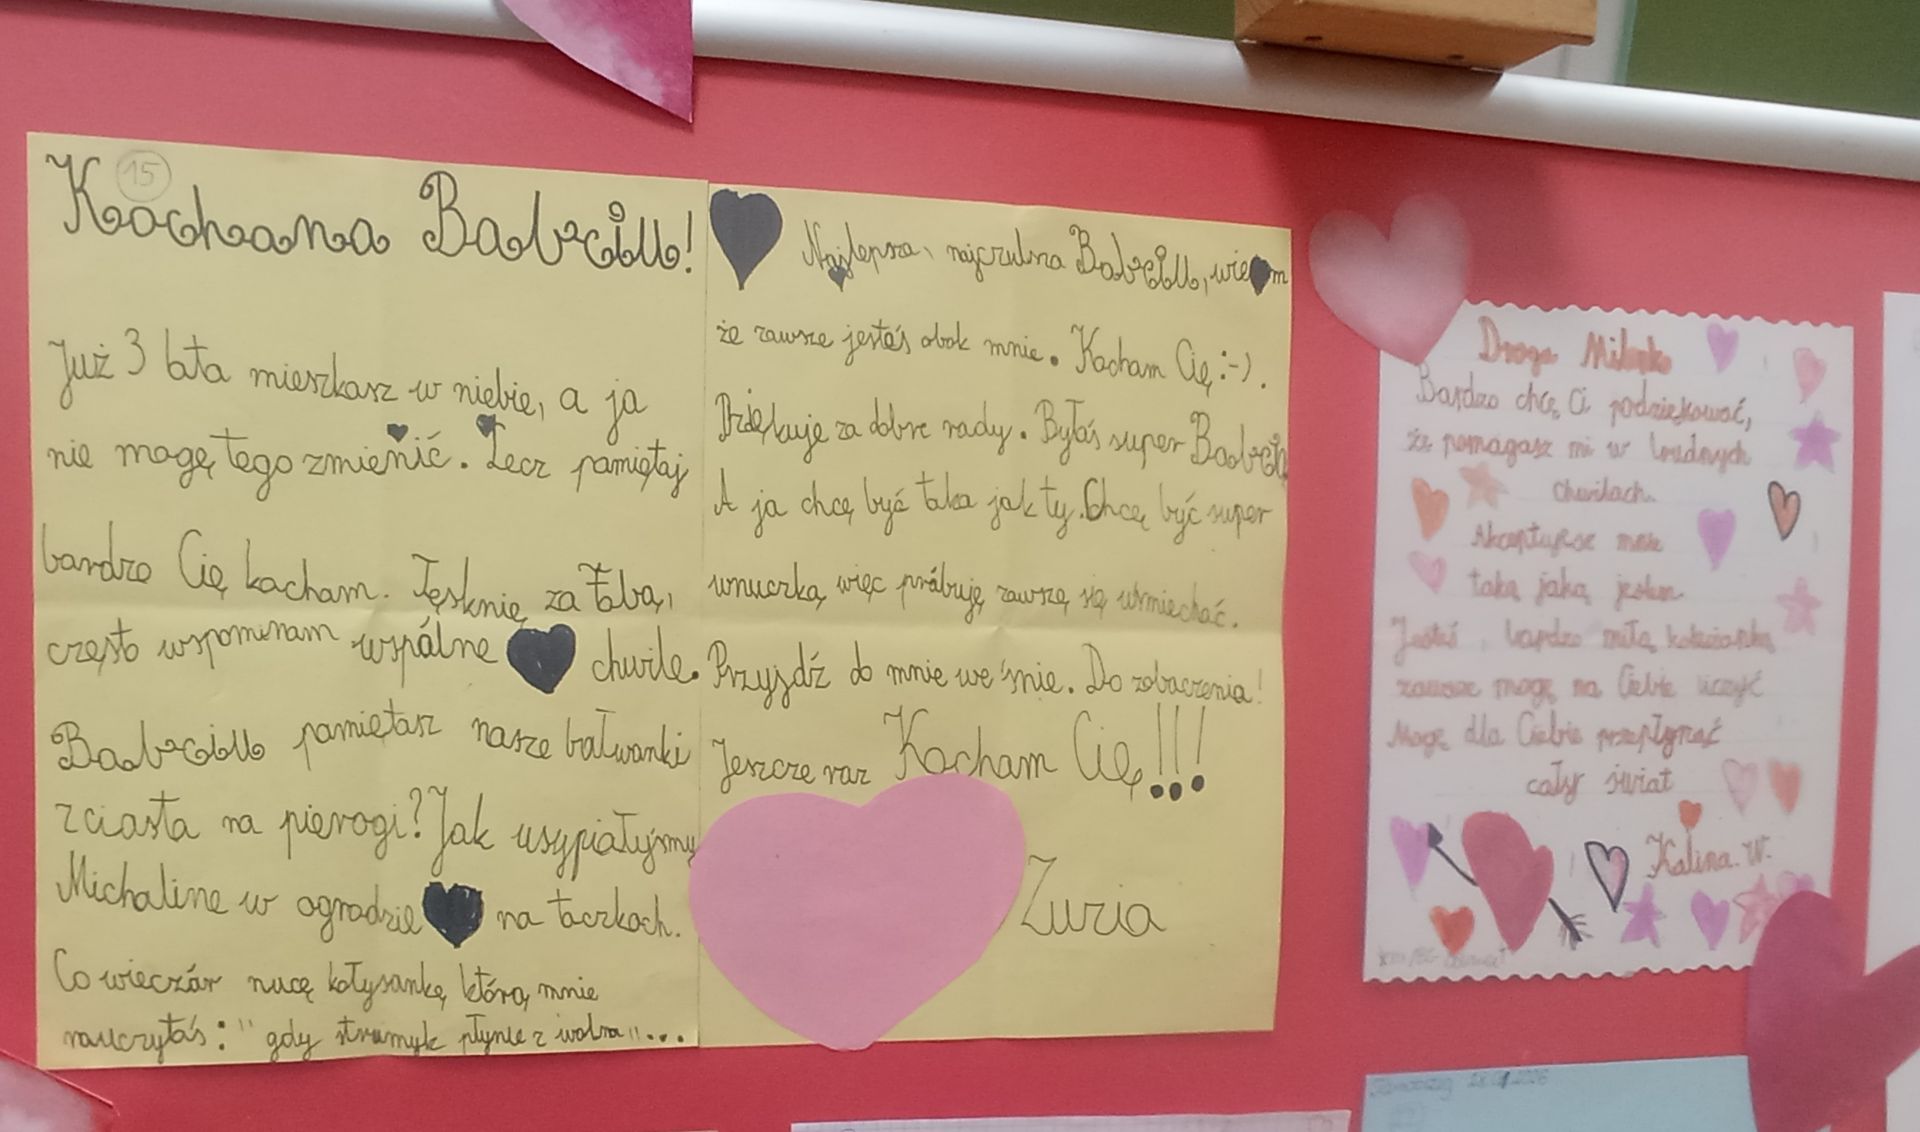 15
Kochana Babciu!
Już 3 lata mieszkasz w niebie, a ja
nie mogę tego zmienić. Lecz pamiętaj
bardzo Cię kocham. Tęsknię za Tobą,
często wspominam wspólne chwile.
Babciu pamiętasz nasze bałwanki
z ciasta na pierogi? Jak usypiałyśmy
Michalinę w ogrodzie na taczkach.
Co wieczór nucę kołysankę, którą mnie
nauczyłaś: "gdy strumyk płynie z wolna"...
Najlepsza, najczulsza Babciu, wiem
że zawsze jesteś obok mnie. Kocham Cię :-).
Dziękuję za dobre rady. Byłaś super Babcią
A ja chcę być taka jak ty. Chcę być super
wnuczką, więc próbuję zawszę się uśmiechać.
Przyjdź do mnie we śnie. Do zobaczenia!
Jeszcze raz Kocham Cię!!!
Zuzia
Droga Milenko
Bardzo chcę Ci podziękować,
że pomagasz mi w trudnych
chwilach.
Akceptujesz mnie
taką jaką jestem
Jesteś bardzo miłą koleżanką
zawsze mogę na Ciebie liczyć
Mogę dla Ciebie przepłynąć
cały świat
Kalina. W.